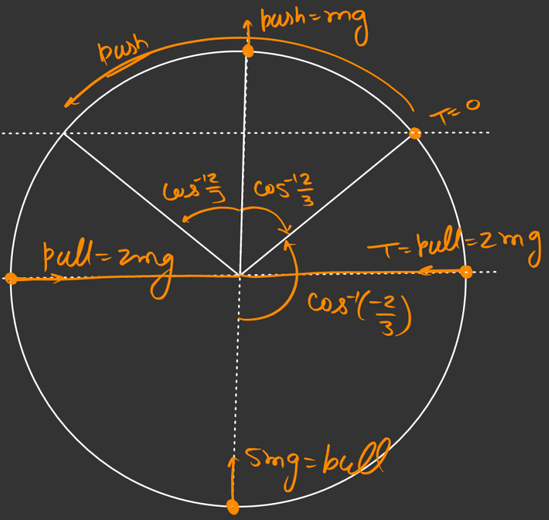 push = mg
push
T = 0
cos⁻¹ 2/3
cos⁻¹ 2/3
pull = 2mg
T = pull = 2mg
cos⁻¹(-2/3)
5mg = pull